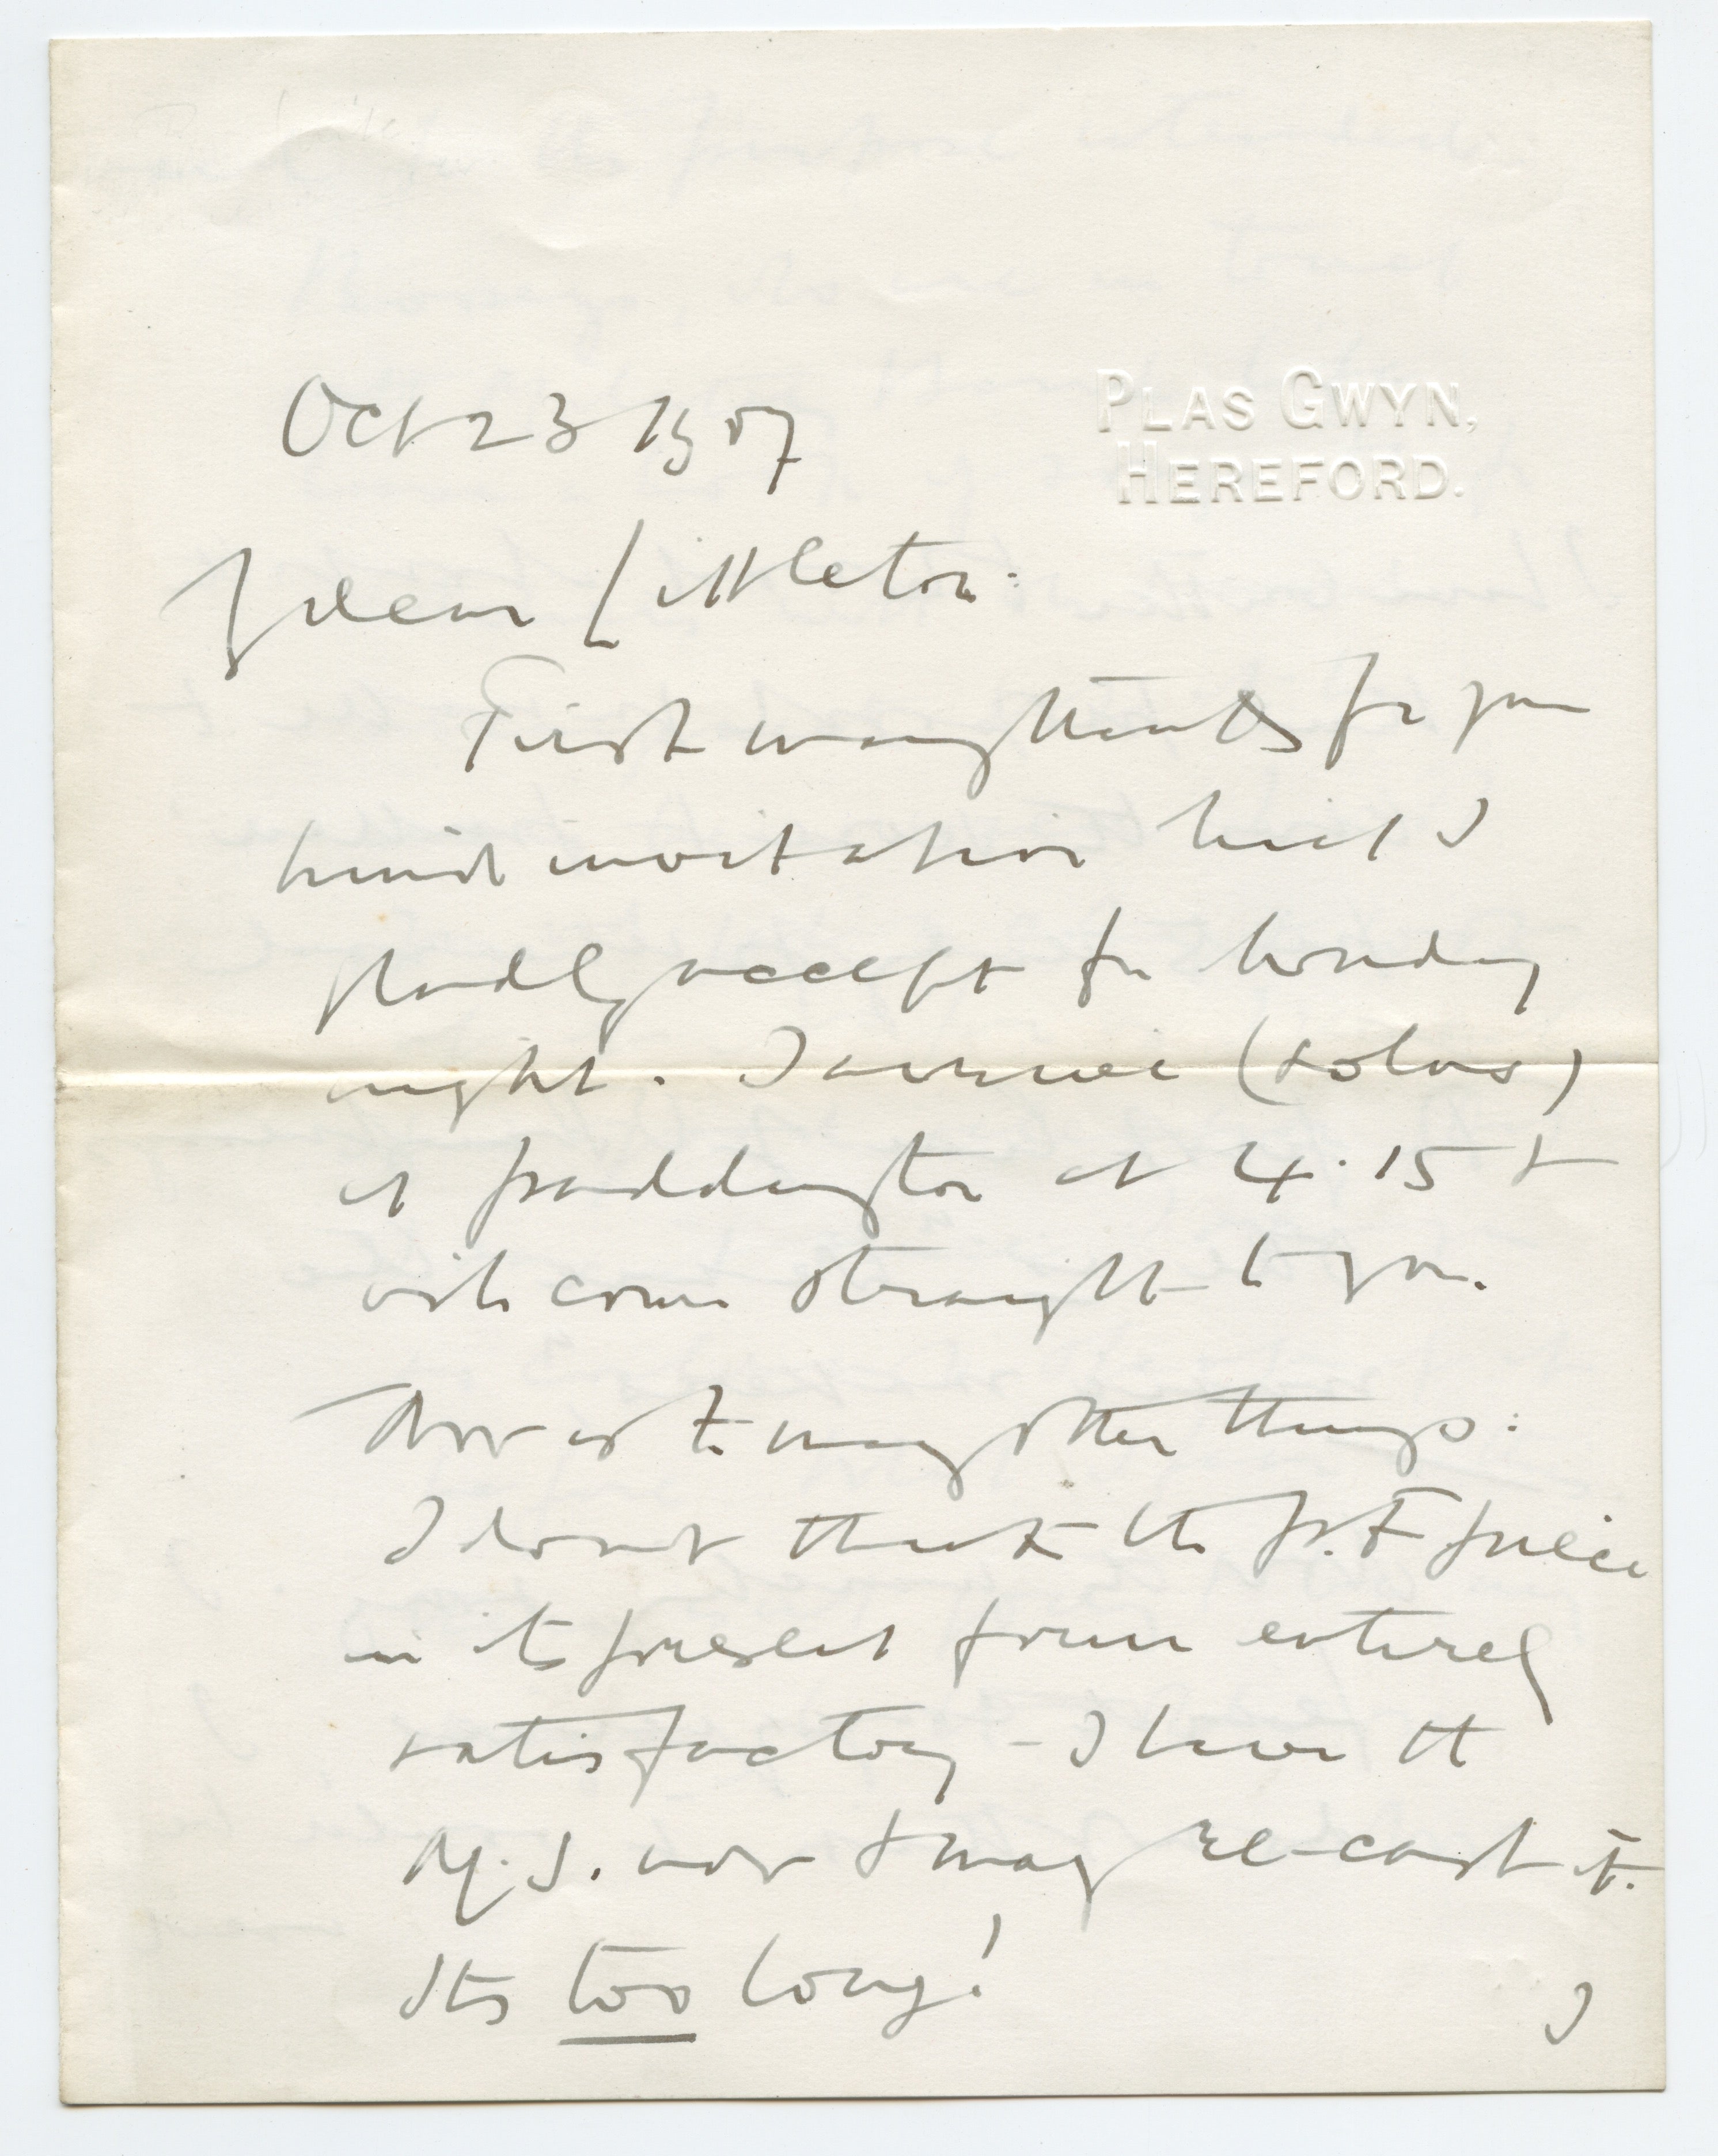 PLAS GWYN,
HEREFORD.
Oct 23 1907
My dear Littleton:
First many thanks for your
kind invitation which I
gladly accept for Monday
night. I arrive (solus)
at Paddington at 4.15 &
will come straight to you.
Now as to many other things:
I do not think the p.F piece
in its present form entirely
satisfactory – I have the
M.S. now & may re-cast it.
Its too long!
I